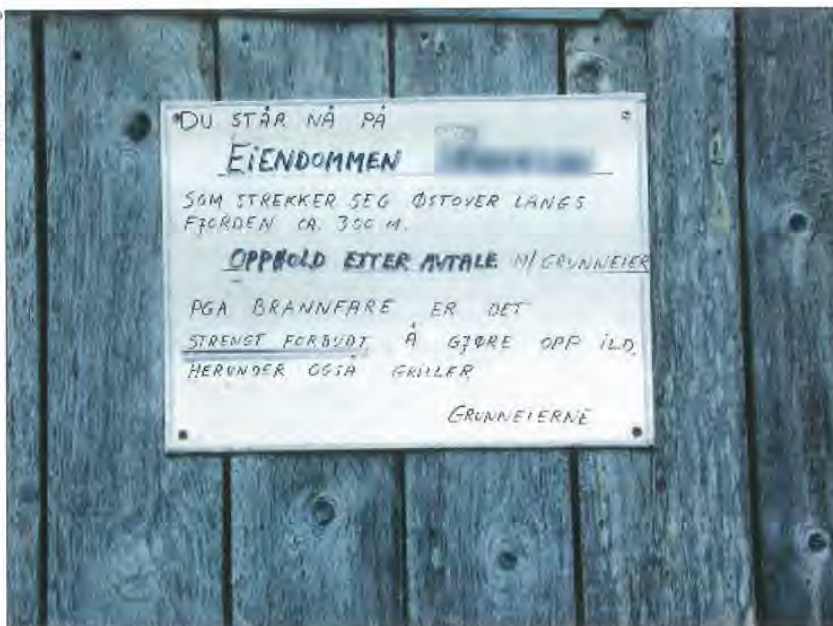 DU STÅR NÅ PÅ
EiENDOMMEN
SOM STREKKER SEG ØSTOVER LANGS
FJORDEN CA. 300 M.
OPPHOLD ETTER AVTALE M/GRUNNEIER
PGA BRANNFARE ER DET
STRENGT FORBUDT Å GJØRE OPP iLD,
HERUNDER OGSÅ GRILLER
GRUNNEIERNE